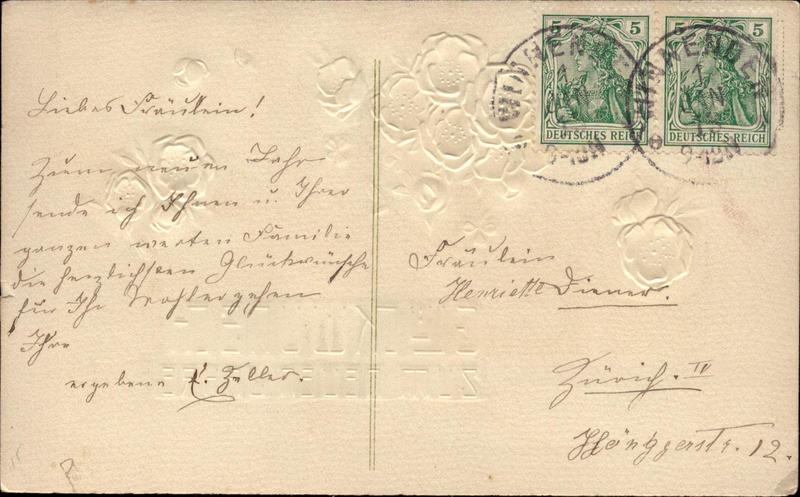 Liebes Fräulein!
Zum neuen Jahr
sende ich Ihnen u. Ihrer
ganzen werten Familie
die herzlichsten Glückwünsche
für Ihr Wohlergehen
Ihre
ergebene K. Zeller.
5 5
DEUTSCHES REICH DEUTSCHES REICH
WINNENDEN
Fräulein
Henriette Diener.
Zürich. IV
Hönggerstr. 12.